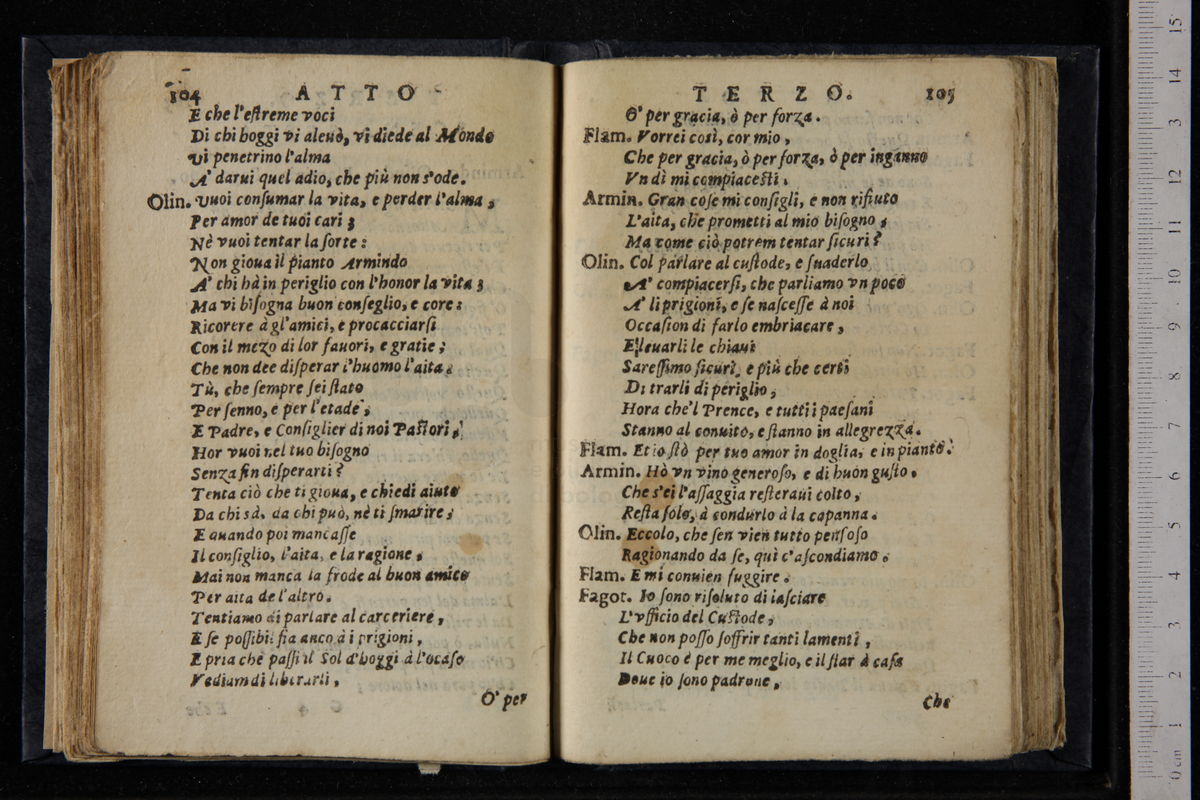 104 ATTO
E che l'eſtreme voci
Di chi hoggi vi aleuò, vi diede al Mondo
Vi penetrino l'alma
A' darui quel adio, che più non s'ode.
Olin. Vuoi conſumar la vita, e perder l'alma,
Per amor de tuoi cari;
Nè vuoi tentar la ſorte:
Non gioua il pianto Armindo
A' chi hà in periglio con l'honor la vita;
Ma vi biſogna buon conſeglio, e core:
Ricorere à gl'amici, e procacciarſi
Con il mezo di lor fauori, e gratie;
Che non dee diſperar l'huomo l'aita.
Tù, che ſempre ſei ſtato
Per ſenno, e per l'etade,
E Padre, e Conſiglier di noi Paſtori,
Hor vuoi nel tuo biſogno
Senza fin diſperarti?
Tenta ciò che ti gioua, e chiedi aiuto
Da chi sà, da chi può, nè ti ſmarire;
E quando poi mancaſſe
Il conſiglio, l'aita, e la ragione,
Mai non manca la frode al buon amico
Per aita de l'altro.
Tentiamo di parlare al carceriere,
E ſe poſſibil fia anco à i prigioni,
E pria che paſſi il Sol d'hoggi à l'ocaſo
Vediam di liberarli,
O' per
TERZO. 105
O' per gracia, ò per forza.
Flam. Vorrei così, cor mio,
Che per gracia, ò per forza, ò per inganno
Vn dì mi compiaceſti.
Armin. Gran coſe mi conſigli, e non rifiuto
L'aita, che prometti al mio biſogno,
Ma come ciò potrem tentar ſicuri?
Olin. Col parlare al cuſtode, e ſuaderlo
A' compiacerſi, che parliamo vn poco
A' li prigioni, e ſe naſceſſe à noi
Occaſion di farlo embriacare,
E leuarli le chiaui
Sareſſimo ſicuri, e più che certi
Di trarli di periglio,
Hora che'l Prence, e tutti i paeſani
Stanno al conuito, e ſtanno in allegrezza.
Flam. Et io ſtò per tuo amor in doglia, e in pianto.
Armin. Hò vn vino generoſo, e di buon guſto.
Che s'ei l'aſſaggia reſteraui colto,
Reſta ſolo, à condurlo à la capanna.
Olin. Eccolo, che ſen vien tutto penſoſo
Ragionando da ſe, quì c'aſcondiamo.
Flam. E mi conuien fuggire.
Fagot. Io ſono riſoluto di laſciare
L'vfficio del Cuſtode,
Che non poſſo ſoffrir tanti lamenti,
Il Cuoco è per me meglio, e il ſtar à caſa
Doue io ſono padrone,
Che
0 cm 1 2 3 4 5 6 7 8 9 10 11 12 13 14 15